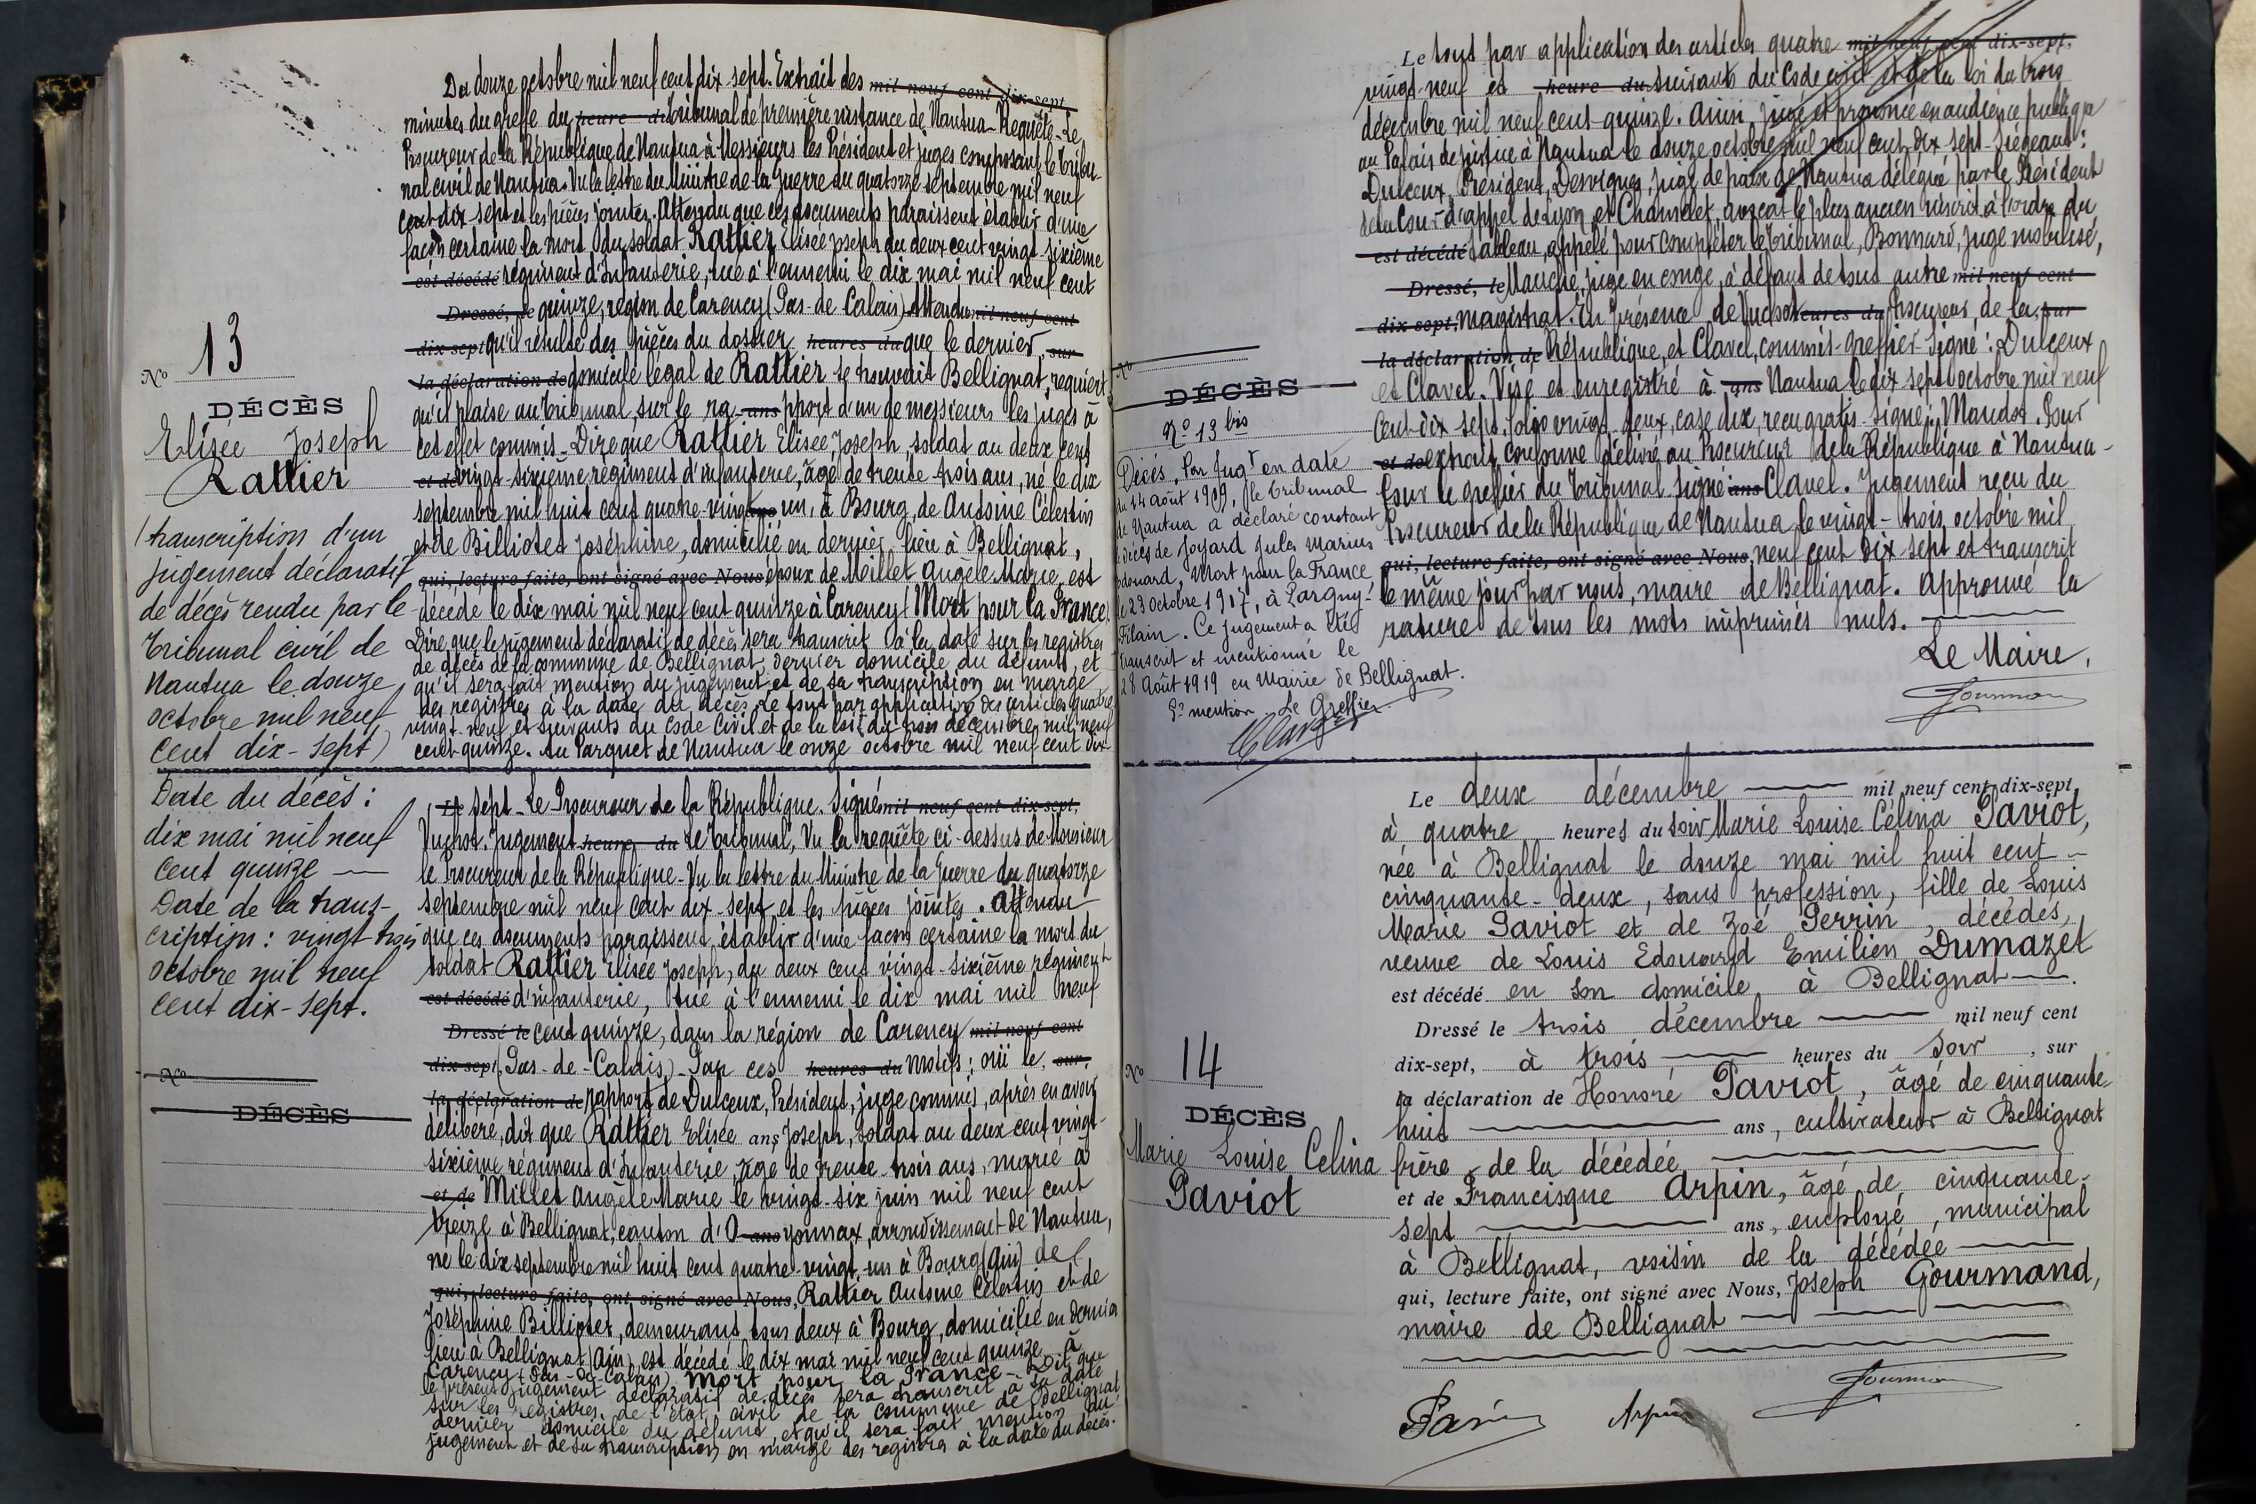 Du douze octobre mil neuf cent dix sept. Extrait des mil neuf cent dix-sept,
minutes du greffe du heure du tribunal de première instance de Nantua - Requête - Le
Procureur de la République de Nantua à Messieurs les Président et juges composant le Tribu-
nal civil de Nantua. Vu la lettre du Ministre de la Guerre du quatorze septembre mil neuf
cent dix sept et les pièces jointes. Attendu que ces documents paraissent établir d'une
façon certaine la mort du soldat Rattier Elisée Joseph du deux cent vingt-sixième
est décédé régiment d'Infanterie, tué à l'ennemi le dix mai mil neuf cent
Dressé, le quinze, région de Carency (Pas-de-Calais) Attendu mil neuf cent
dix sept qu'il résulte des pièces du dossier heures du que le dernier, sur
la déclaration de domicile légal de Rattier se trouvait Bellignat, requiert
qu'il plaise au Tribunal, sur le ra- ans pport d'un de messieurs les juges à
cet effet commis - Dire que Rattier Elisée, Joseph, soldat au deux cent
et de vingt-sixième régiment d'infanterie, âgé de trente-trois ans, né le dix
septembre mil huit cent quatre-vingt ans un, à Bourg, de Antoine Célestin
et de Billiotet Joséphine, domicilié en dernier lieu à Bellignat,
qui, lecture faite, ont signé avec Nous époux de Meillet Angèle Marie, est
décédé le dix mai mil neuf cent quinze à Carency (Mort pour la France).
Dire que le jugement déclaratif de décès sera transcrit à la date sur les registres
de décès de la commune de Bellignat, dernier domicile du défunt, et
qu'il sera fait mention du jugement et de sa transcription en marge
des registres à la date du décès. Le tout par application des articles quatre
vingt-neuf et suivants du Code Civil et de la loi du trois décembre mil neuf
cent quinze. Au Parquet de Nantua le onze octobre mil neuf cent dix-
No 13
DÉCÈS
Elisée Joseph
Rattier
(transcription d'un
jugement déclaratif
de décès rendu par le
tribunal civil de
Nantua le douze
octobre mil neuf
cent dix-sept)
Date du décès :
dix mai mil neuf
cent quinze
Date de la trans-
cription : vingt-trois
octobre mil neuf
cent dix-sept.
No
DÉCÈS
Le sept - Le Procureur de la République. Signé mil neuf cent dix-sept,
Vuchot. Jugement heure du Le Tribunal, Vu la requête ci-dessus de Monsieur
le Procureur de la République - Vu la lettre du Ministre de la Guerre du quatorze
septembre mil neuf cent dix-sept et les pièces jointes. Attendu
que ces documents paraissent établir d'une façon certaine la mort du
soldat Rattier Elisée Joseph, du deux cent vingt-sixième régiment
est décédé d'infanterie, tué à l'ennemi le dix mai mil neuf
Dressé le cent quinze, dans la région de Carency mil neuf cent
dix sept (Pas-de-Calais) - Par ces heures du motifs ; ouï le, sur
la déclaration de rapport de Dulceux, Président, juge commis, après en avoir
délibéré, dit que Rattier Elisée ans Joseph, soldat au deux cent vingt-
sixième régiment d'Infanterie, âgé de trente-trois ans, marié à
et de Millet Angèle Marie le vingt-six juin mil neuf cent
treize à Bellignat, canton d'O- ans yonnax, arrondissement de Nantua,
né le dix septembre mil huit cent quatre-vingt-un à Bourg (Ain) de
qui, lecture faite, ont signé avec Nous, Rattier Antoine Célestin et de
Joséphine Billiotet, demeurant tous deux à Bourg, domicilié en dernier
lieu à Bellignat (Ain), est décédé le dix mai mil neuf cent quinze à
Carency (Pas-de-Calais) Mort pour la France - Dit que
le présent jugement déclaratif de décès sera transcrit à sa date
sur les registres de l'état civil de la commune de Bellignat
dernier domicile du défunt, et qu'il sera fait mention du
jugement et de sa transcription en marge des registres à la date du décès.
Le tout par application des articles quatre mil neuf cent dix-sept,
vingt-neuf et heure du suivants du Code civil et de la loi du trois
décembre mil neuf cent quinze. Ainsi jugé et prononcé en audience publique
au Palais de justice à Nantua le douze octobre mil neuf cent dix-sept - Siégeant :
Dulceux, Président, Desvignes, juge de paix de Nantua délégué par le Président
de la Cour d'appel de Lyon et Chamelet, avocat le plus ancien inscrit à l'ordre du
est décédé tableau, appelé pour compléter le tribunal, Bonnard, juge mobilisé,
Dressé, le Mauche, juge en congé, à défaut de tout autre mil neuf cent
dix sept, magistrat. En présence de Vuchot heures du Procureur de la, sur
la déclaration de République, et Clavel, commis-greffier Signé : Dulceux
et Clavel. Visé et enregistré à ans Nantua le dix sept octobre mil neuf
cent dix sept, folio vingt-deux, case dix, reçu gratis - signé : Maudot. Pour
et de extrait conforme délivré au Procureur de la République à Nantua -
Pour le greffier du Tribunal Signé ans Clavel. Jugement reçu du
Procureur de la République de Nantua le vingt-trois octobre mil
qui, lecture faite, ont signé avec Nous, neuf cent dix sept et transcrit
le même jour par nous, maire de Bellignat. Approuvé la
rature de tous les mots imprimés nuls.
Le Maire,
No
DÉCÈS
No 13 bis
Décès, Par Jugt en date
du 14 août 1919, le tribunal
de Nantua a déclaré constant
le décès de Joyard Jules Marius
Edouard, Mort pour la France
le 23 Octobre 1917, à Pargny-
Filain. Ce jugement a été
transcrit et mentionné le
28 Août 1919 en Mairie de Bellignat.
Pr mention - Le Greffier
Le deux décembre mil neuf cent dix-sept,
à quatre heures du soir Marie Louise Célina Paviot,
née à Bellignat le douze mai mil huit cent
cinquante-deux, sans profession, fille de Louis
Marie Paviot et de Zoé Perrin, décédés,
veuve de Louis Edouard Emilien Dumazet
est décédé en son domicile à Bellignat
Dressé le trois décembre mil neuf cent
dix-sept, à trois heures du soir, sur
la déclaration de Honoré Paviot, âgé de cinquante-
huit ans, cultivateur à Bellignat
frère de la décédée
et de Francisque Arpin, âgé de cinquante-
sept ans, employé municipal
à Bellignat, voisin de la décédée
qui, lecture faite, ont signé avec Nous, Joseph Gourmand,
maire de Bellignat
No 14
DÉCÈS
Marie Louise Celina
Paviot
Arpin